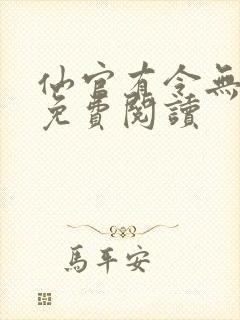 仙官有令無
免費閱讀
馬平安